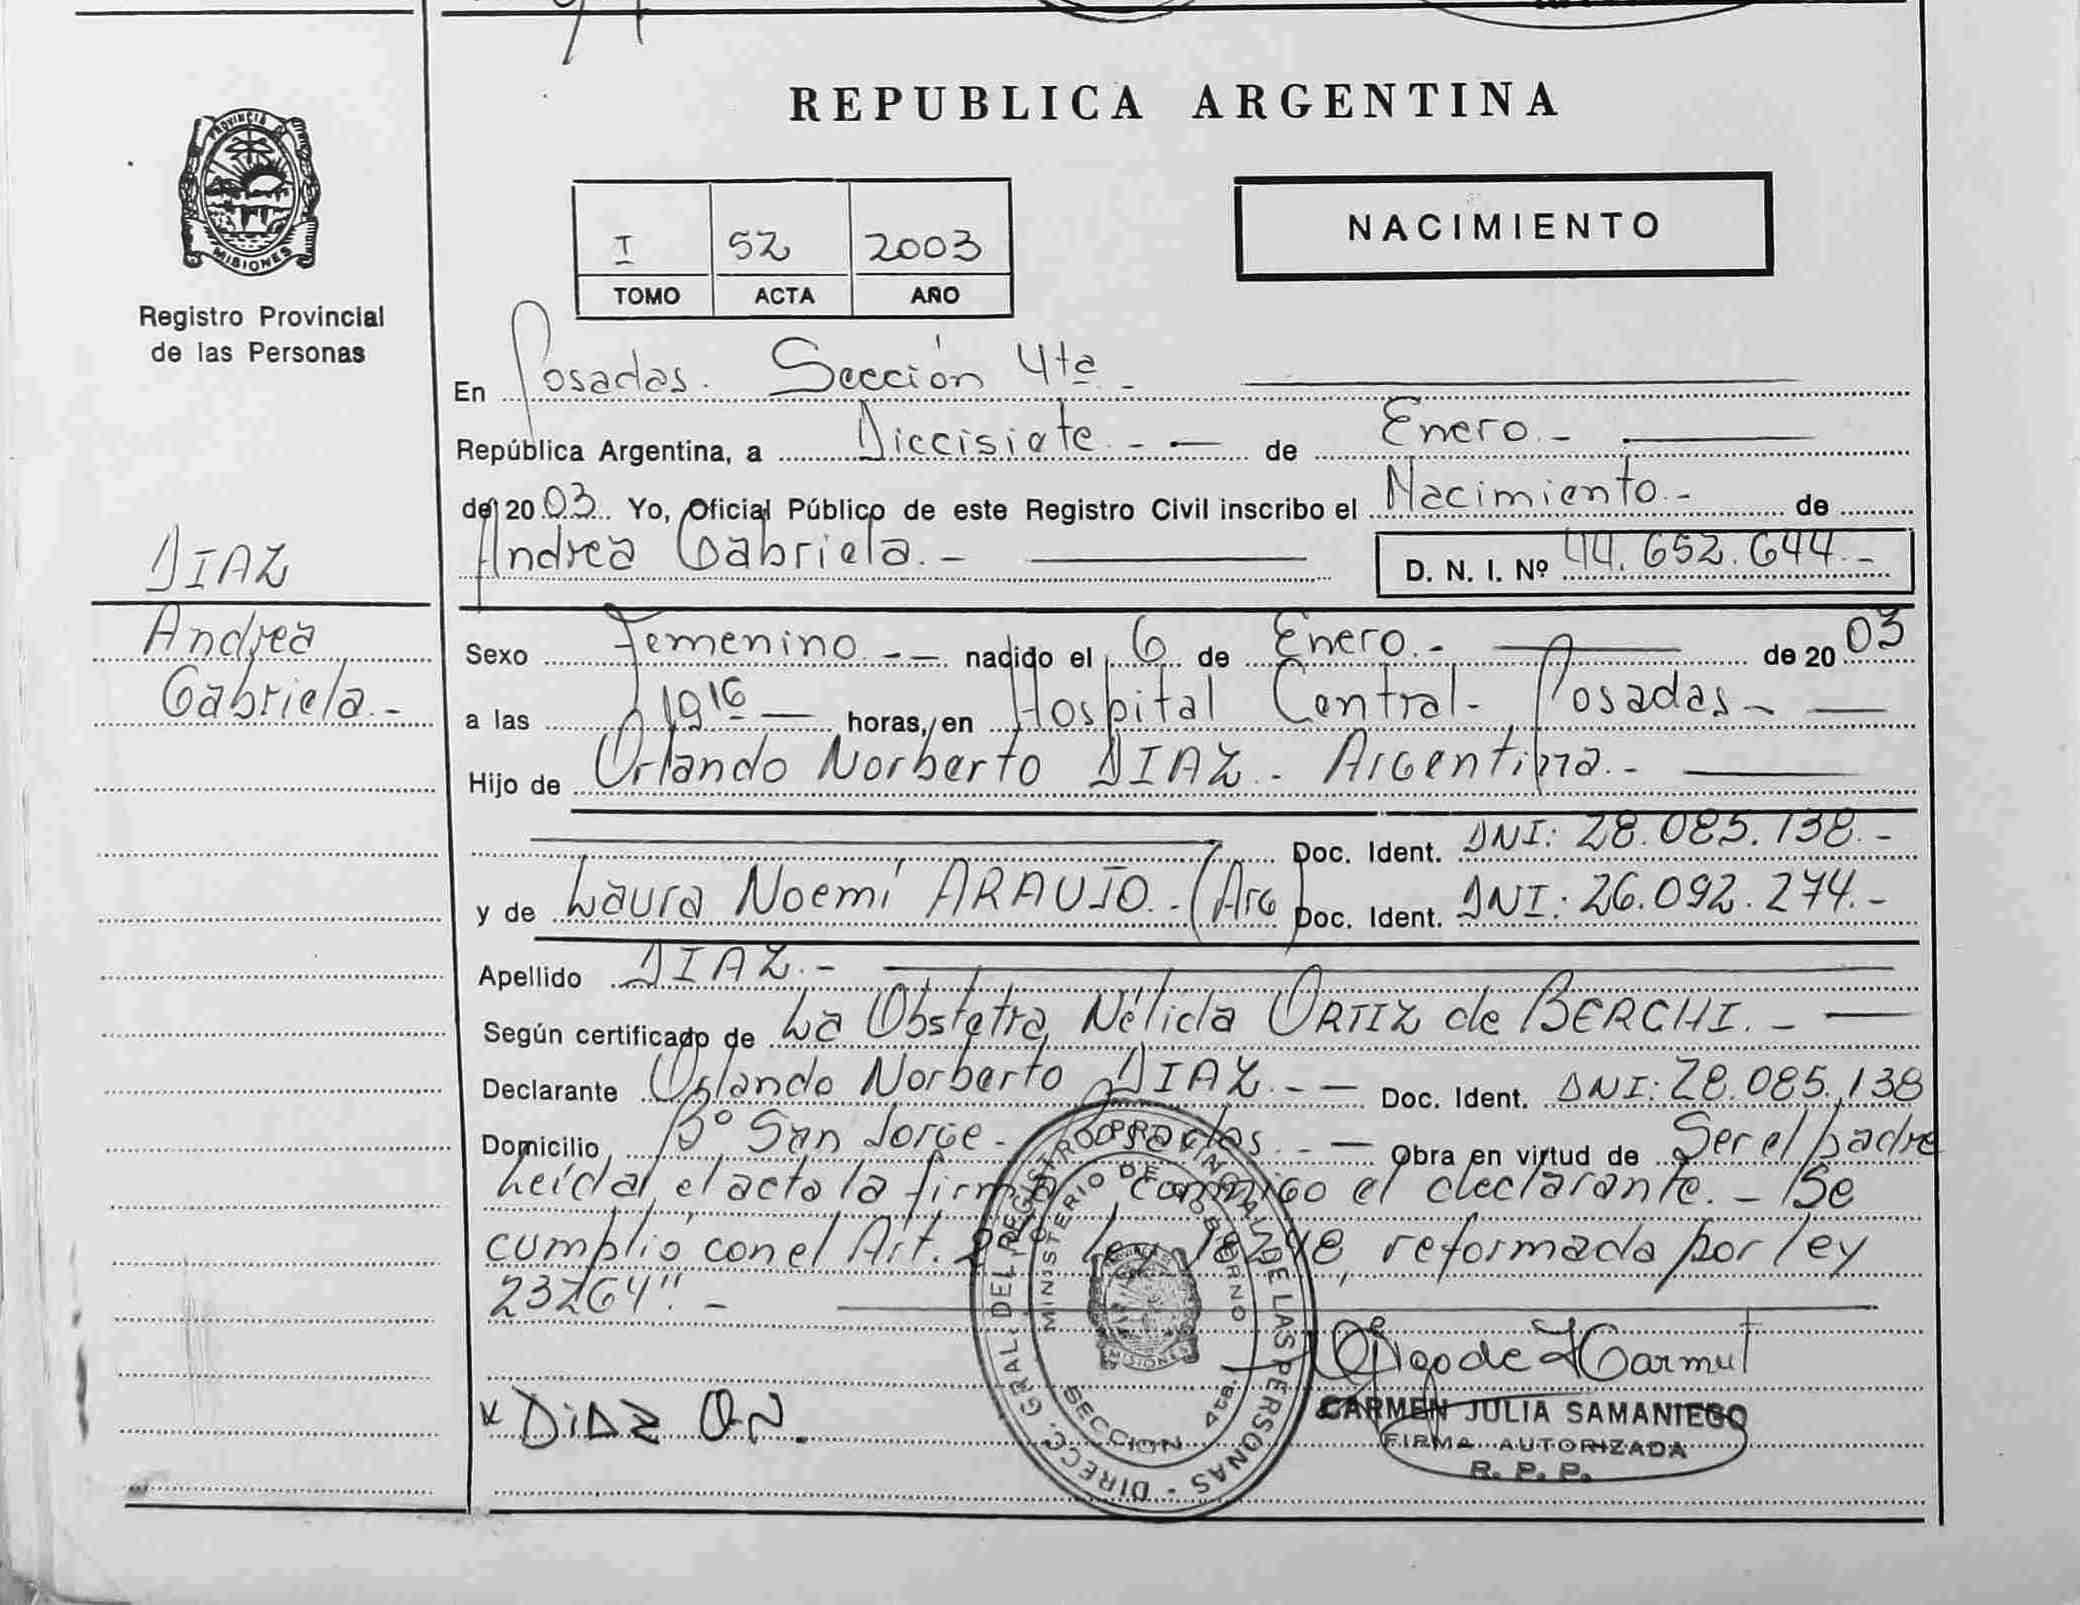 REPUBLICA ARGENTINA
PROVINCIA DE
MISIONES
Registro Provincial
de las Personas
I 52 2003
TOMO ACTA AÑO
NACIMIENTO
En Posadas. Sección 4ta -
República Argentina, a Diecisiete.- — de Enero.-
de 2003. Yo, Oficial Público de este Registro Civil inscribo el Nacimiento.- de
Andrea Gabriela.- D. N. I. Nº 44.652.644.-
DIAZ
Andrea
Gabriela.-
Sexo Femenino.-- nacido el 6 de Enero.- de 2003
a las 19 16 — horas, en Hospital Central- Posadas-
Hijo de Orlando Norberto DIAZ.- Argentina.-
Doc. Ident. DNI: 28.085.138.-
y de Laura Noemí ARAUJO.-(Arg) Doc. Ident. DNI: 26.092.274.-
Apellido DIAZ.-
Según certificado de La Obstetra, Nélida ORTIZ de BERCHI.-
Declarante Orlando Norberto DIAZ.-- Doc. Ident. DNI: 28.085.138
Domicilio Bº San Jorge- Posadas.- Obra en virtud de Ser el padre
Leída el acta la firma conmigo el declarante.- "Se
cumplió con el Art. Ley 18248, reformada por ley
23264".-
DIRECC. GRAL. DEL REGISTRO PROVINCIAL DE LAS PERSONAS -
MINISTERIO DE GOBIERNO
MISIONES
SECCION 4ta.
x DiAZ O.N.
CARMEN JULIA SAMANIEGO
FIRMA AUTORIZADA
R. P. P.